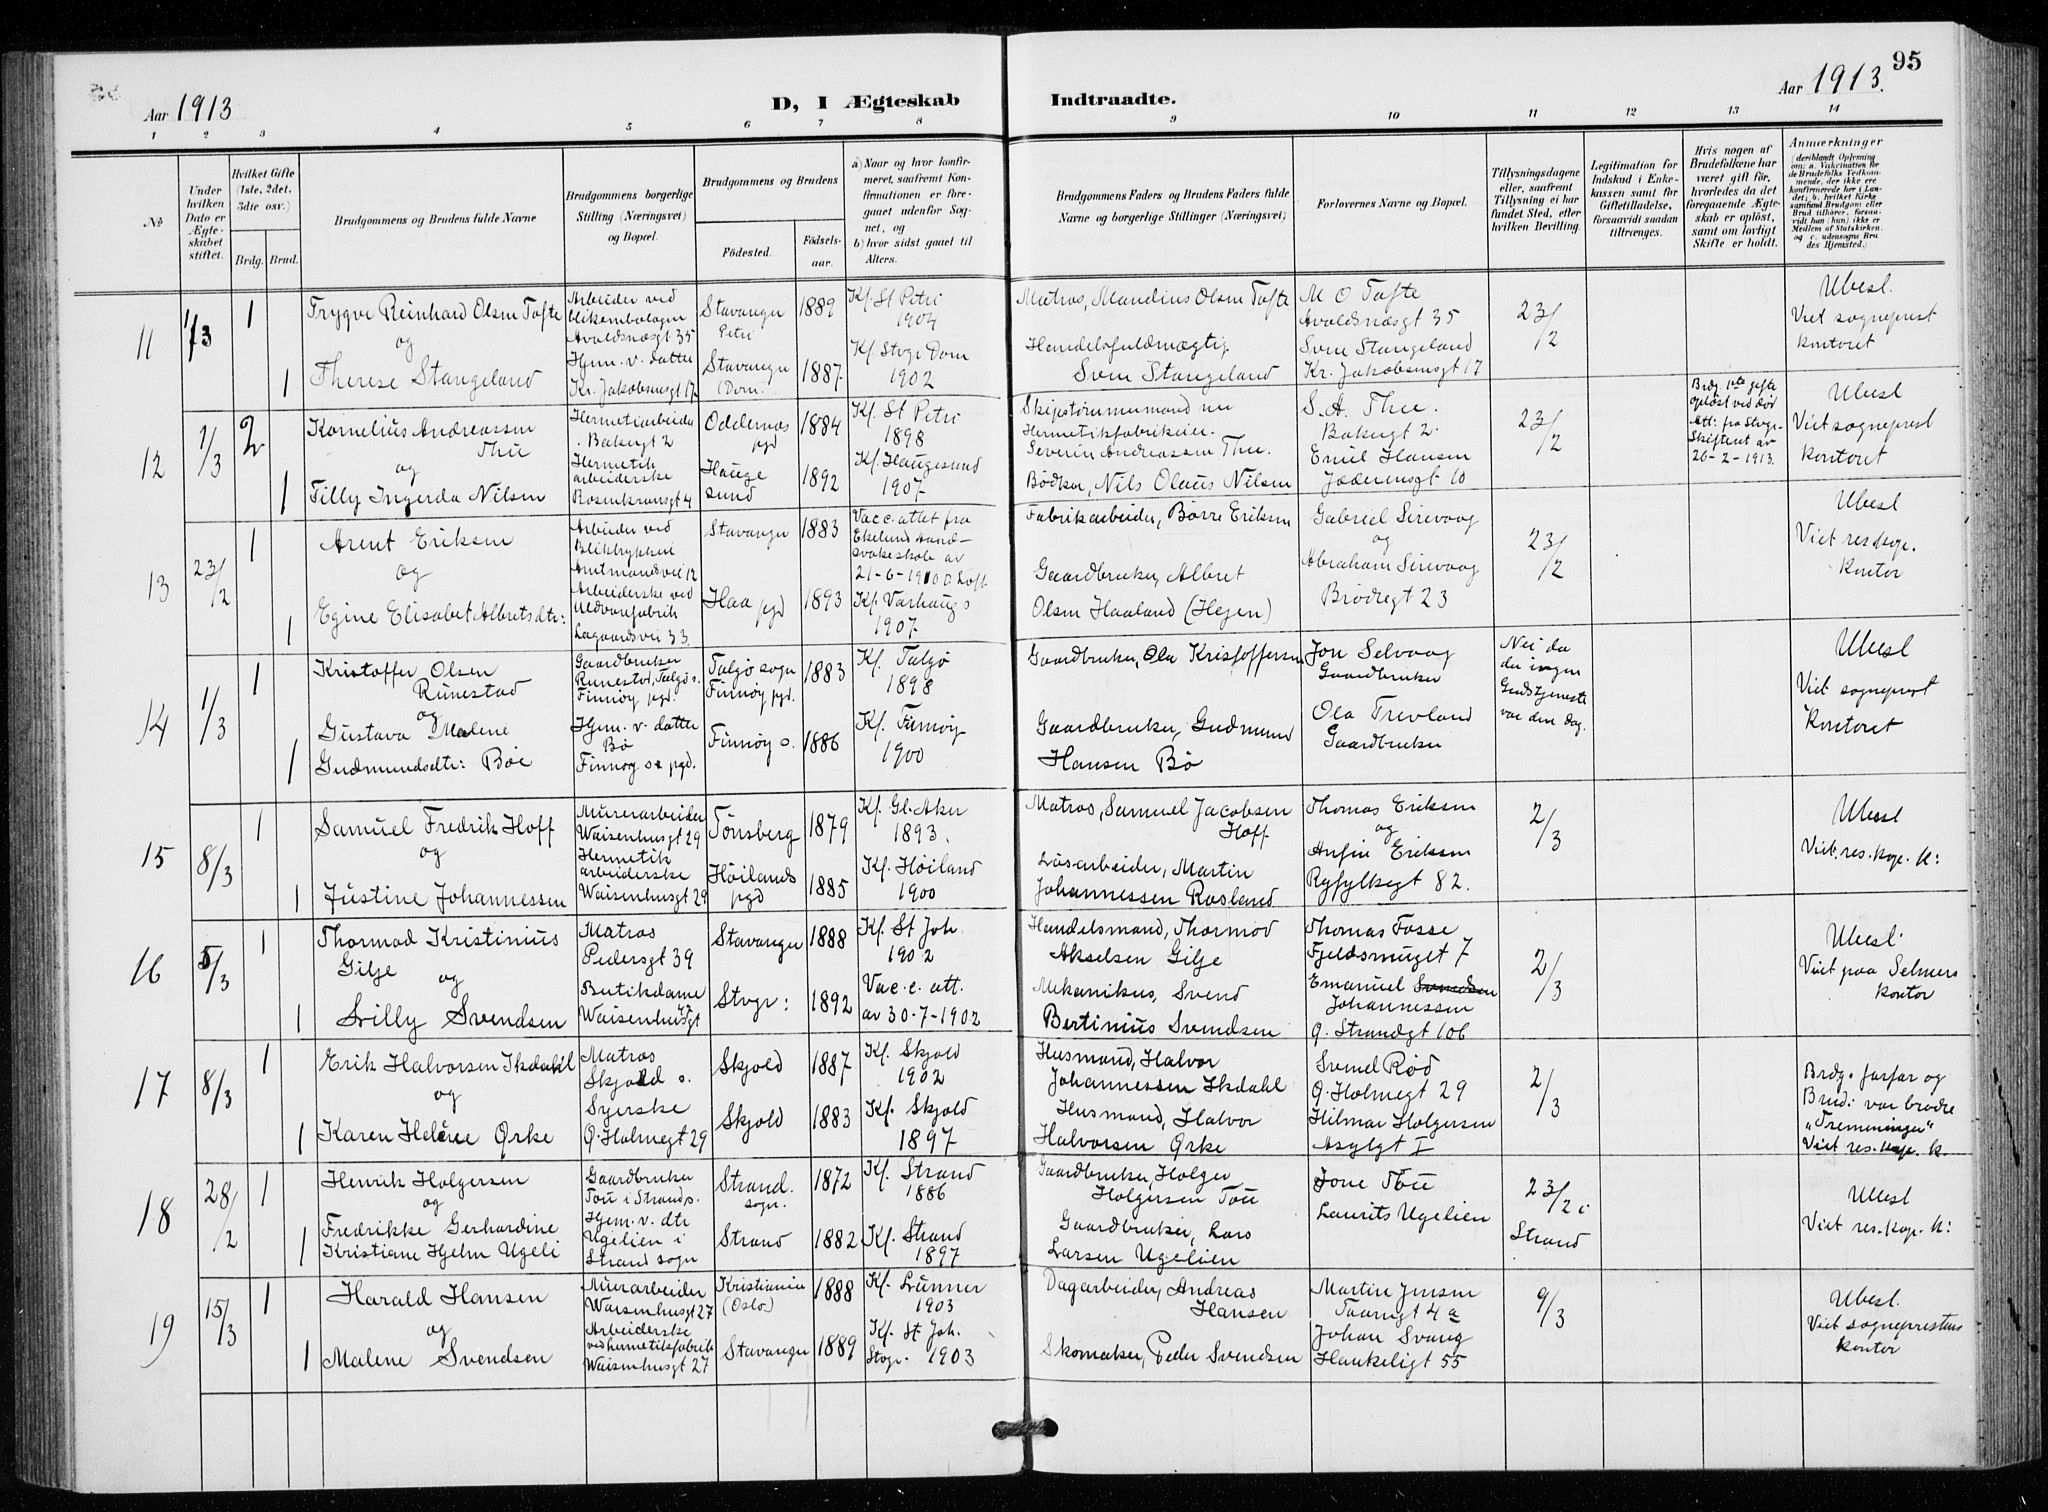 95
Aar 1913
D, I Ægteskab
Indtraadte.
Aar 1913.
1 2 3 4 5 6 7 8 9 10 11 12 13 14
No
Under hvilken Dato er Ægteskabet stiftet.
Hvilket Gifte (1ste, 2det, 3die osv.)
Brdg. Brud.
Brudgommens og Brudens fulde Navne
Brudgommens borgerlige Stilling (Næringsvei) og Bopæl.
Brudgommens og Brudens
Födested.
Födsels-aar.
a) Naar og hvor konfirmeret, saafremt Konfirmationen er foregaaet udenfor Sognet, og
b) hvor sidst gaaet til Alters.
Brudgommens Faders og Brudens Faders fulde Navne og borgerlige Stillinger (Næringsvei)
Forlovernes Navne og Bopæl.
Tillysningsdagene eller, saafremt Tillysning ei har fundet Sted, efter hvilken Bevilling.
Legitimation for Indskud i Enkekassen samt for Giftetilladelse, forsaavidt saadan tiltrænges.
Hvis nogen af Brudefolkene har været gift för, hvorledes da det foregaaende Ægteskab er oplöst, samt om lovligt Skifte er holdt.
Anmerkninger
(deriblandt Oplysning om: a. Vakcination for de Brudefolks Vedkommende, der ikke ere konfirmerede her i Landet; b. hvilket Kirkesamfund Brudgom eller Brud tilhører, forsaavidt han (hun) ikke er Medlem af Statskirken, og c. udensogns Brudes Hjemsted.)
11
1/3
1
Trygve Reinhard Olsen Tofte
og
1
Therese Stangeland
Arbeider ved
blikemballagen
Avaldsnæsgt 35
Hjem. v. datter
Kr. Jakobsensgt 17
Stavanger
Petri
1889
Stavanger
Dom.
1887
Kf. St Petri
1904
Kf. Stvgr Dom
1902
Matros, Mandius Olsen Tofte
Handelsfuldmægtig
Sven Stangeland
M O Tofte
Avaldsnæsgt 35
Sven Stangeland
Kr. Jakobsensgt 17
23/2
Ubesl.
Viet sogneprest
kontoret
12
1/3
2
Kornelius Andreassen
Thu
og
1
Tilly Ingerda Nilsen
Hermetiarbeider
Bakkegt 2
Hermetik
arbeiderske
Rosenkransgt 4
Oddernes
pgd
1884
Hauge
sund
1892
Kf. St Petri
1898
Kf. Haugesund
1907
Skipstømmermand nu
Hermetikfabrikeier
Severin Andreassen Thu.
Bødker, Nils Olaus Nilsen
S. A. Thu.
Bakkegt 2
Emil Hansen
Jæderensgt 10
23/2
Brdg. 1ste gifte
opløst ved død
Att: fra Stvgr.
Skifteret av
26-2-1913.
Ubesl
Viet sogneprest
kontoret
13
23/2
1
Arent Eriksen
og
1
Egine Elisabet Albretsdtr:
Arbeider ved
Bliktrykkeri
Amtmandvei 12
Arbeiderske ved
Uldvarefabrik
Lagaardsvei 33.
Stavanger
1883
Haa
pgd
1893
Vacc. attet fra
Ekelund Aand-
svakeskole av
21-6-1900
Kf. Varhaug s
1907
Fabrikarbeider, Børre Eriksen
Gaardbruker, Albret
Olsen Haaland (Hegen)
Gabriel Sirevaag
og
Abraham Sirevaag
Brødregt 23
23/2
Ubesl
Viet res. kap.
kontor
14
1/3
1
Kristoffer Olsen
Runestad
og
Gustava Malene
1
Gudmundsdtr: Bøe
Gaardbruker
Runestad, Talgø s.
Finnøy pgd.
Hjem. v. datter
Bø
Finnøy s. pgd.
Talgø sogn
Finnøy pgd.
1883
Finnøy s.
1886
Kf. Talgø
1898
Kf. Finnøy
1900
Gaardbruker, Ola Kristoffersen
Gaardbruker, Gudmund
Hansen Bø
Jon Selvaag
Gaardbruker
Ola Trevland
Gaardbruker
Nei da
der ingen
Gudstjeneste
var den dag.
Ubesl
Viet sogneprest
kontoret
15
8/3
1
Samuel Fredrik Hoff
og
1
Justine Johannessen
Murerarbeider
Waisenhusgt 29
Hermetik
arbeiderske
Waisenhusgt 29
Tønsberg
1879
Høilands
pgd
1885
Kf. Gl. Aker
1893.
Kf. Høiland
1900
Matros, Samuel Jacobsen
Hoff
Løsarbeider, Martin
Johannessen Rosland
Thomas Eriksen
og
Anfin Eriksen
Ryfylkegt 82.
2/3
Ubesl
Viet. res. kap. k:
16
5/3
1
Thormod Kristinius
Gilje
og
1
Lilly Svendsen
Matros
Pedersgt 39
Butikdame
Waisenhusgt
Stavanger
1888
Stvgr:
1892
Kf. St Joh.
1902
Vacc. att.
av 30-7-1902
Handelsmand, Thormod
Akselsen Gilje
Mekanikus, Svend
Bertinius Svendsen
Thomas Fosse
Fjeldsmuget 7
Emanuel Svendsen
Johannessen
Ø. Strandgt 106
2/3
Ubesl.
Viet paa Selmers
kontor
17
8/3
1
Erik Halvorsen Ikdahl
og
1
Karen Helene Ørke
Matros
Skjold s.
Syerske
Ø. Holmegt 29
Skjold
1887
Skjold
1883
Kf. Skjold
1902
Kf. Skjold
1897
Husmand, Halvor
Johannessen Ikdahl
Husmand, Halvor
Halvorsen Ørke
Svend Rød
Ø. Holmegt 29
Hilmar Holgersen
Asylgt 1
2/3
Brdg. farfar og
Brud: var brødre
"Tremenninger"
Viet res. kap. k.
18
28/2
1
Henrik Holgersen
og
Fredrikke Gerhardine
1
Kristiane Hjelm Ugeli
Gaardbruker
Tou i Strands.
Hjem. v. dtr
Ugelien i
Strand sogn
Strand.
sogn.
1872
Strand
1882
Kf. Strand
1886
Kf. Strand
1897
Gaardbruker, Holger
Holgersen Tou
Gaardbruker, Lars
Larsen Ugelien
Jone Tou
Laurits Ugelien
23/2 i
Strand
Ubesl
Viet res. kap. k:
19
15/3
1
Harald Hansen
og
1
Malene Svendsen
Murarbeider
Waisenhusgt 27
Arbeiderske
ved hermetikfabrik
Waisenhusgt 27
Kristiania
(Oslo)
1888
Stavanger
1889
Kf. Lunner
1903
Kf. St Joh.
Stvgr. 1903
Dagarbeider, Andreas
Hansen
Skomaker, Peder Svendsen
Martin Jensen
Taarngt 4a
Johan Svang
Haukeligt 55
9/3
Ubesl.
Viet sogneprestens
kontor